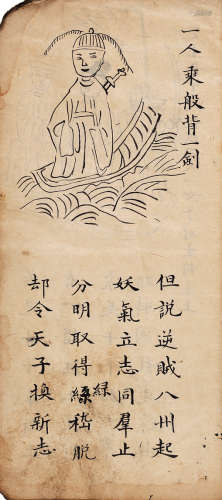 一人乘般背一劍
但說逆賊八州起
妖氣立志同羣止
分明取得緑嵇脫
却令天子換新志